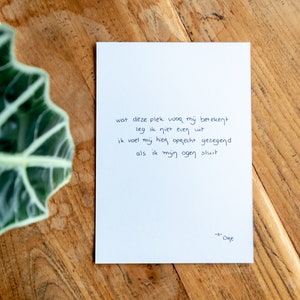 wat deze plek voor mij betekent
leg ik niet even uit
ik voel mij hier oprecht gezegend
als ik mijn ogen sluit